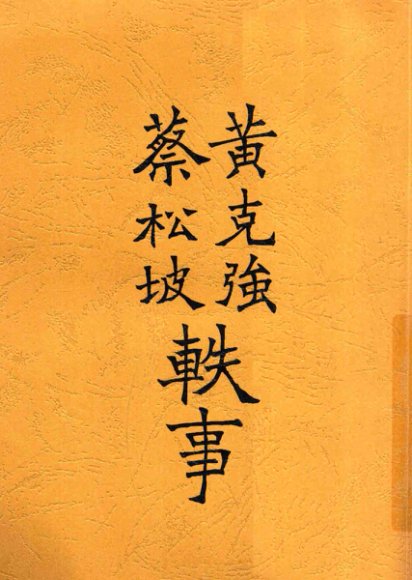 黃克強
蔡松坡
軼事